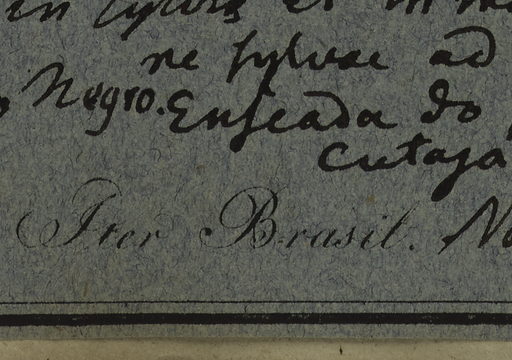 in sylvis et in
ne sylvae ad
Negro. Enseada do
Cutaja
Iter Brasil. No